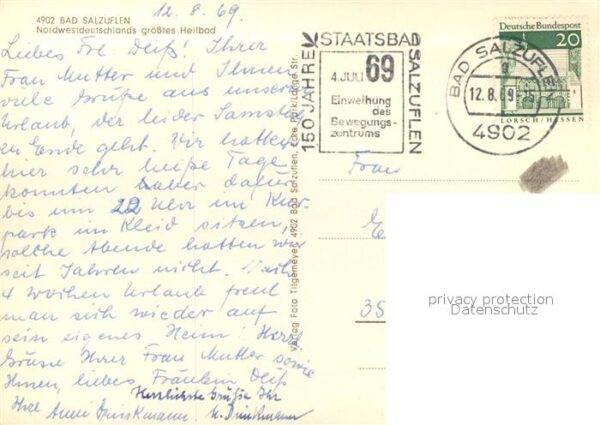 12.8.69.
4902 BAD SALZUFLEN
Nordwestdeutschlands größtes Heilbad
Liebes Frl. Deiß! Ihrer
Frau Mutter und Ihnen
viele Grüße aus unserem
Urlaub, der leider Samstag
zu Ende geht. Wir hatten
hier sehr heiße Tage
konnten daher dafür
bis um 22 Uhr im Kur
park im Kleid sitzen,
solche Abende hatten wir
seit Jahren nicht. Nach
4 Wochen Urlaub freut
man sich wieder auf
sein eigenes Heim! Herzl.
Grüße Ihrer Frau Mutter sowie
Ihnen, liebes Fräulein Deiß
Herzlichste Grüße Ihr
Ihre Anni Brinkmann. H. Brinkmann
Verlag Foto Tilgemeyer, 4902 Bad Salzuflen, Ecke Park/Lange Str.
150 JAHRE STAATSBAD SALZUFLEN
4. JULI 69
Einweihung
des
Bewegungs-
zentrums
BAD SALZUFLEN
12.8.69
4902
Deutsche Bundespost
20
LORSCH/HESSEN
Frau
35
privacy protection
Datenschutz